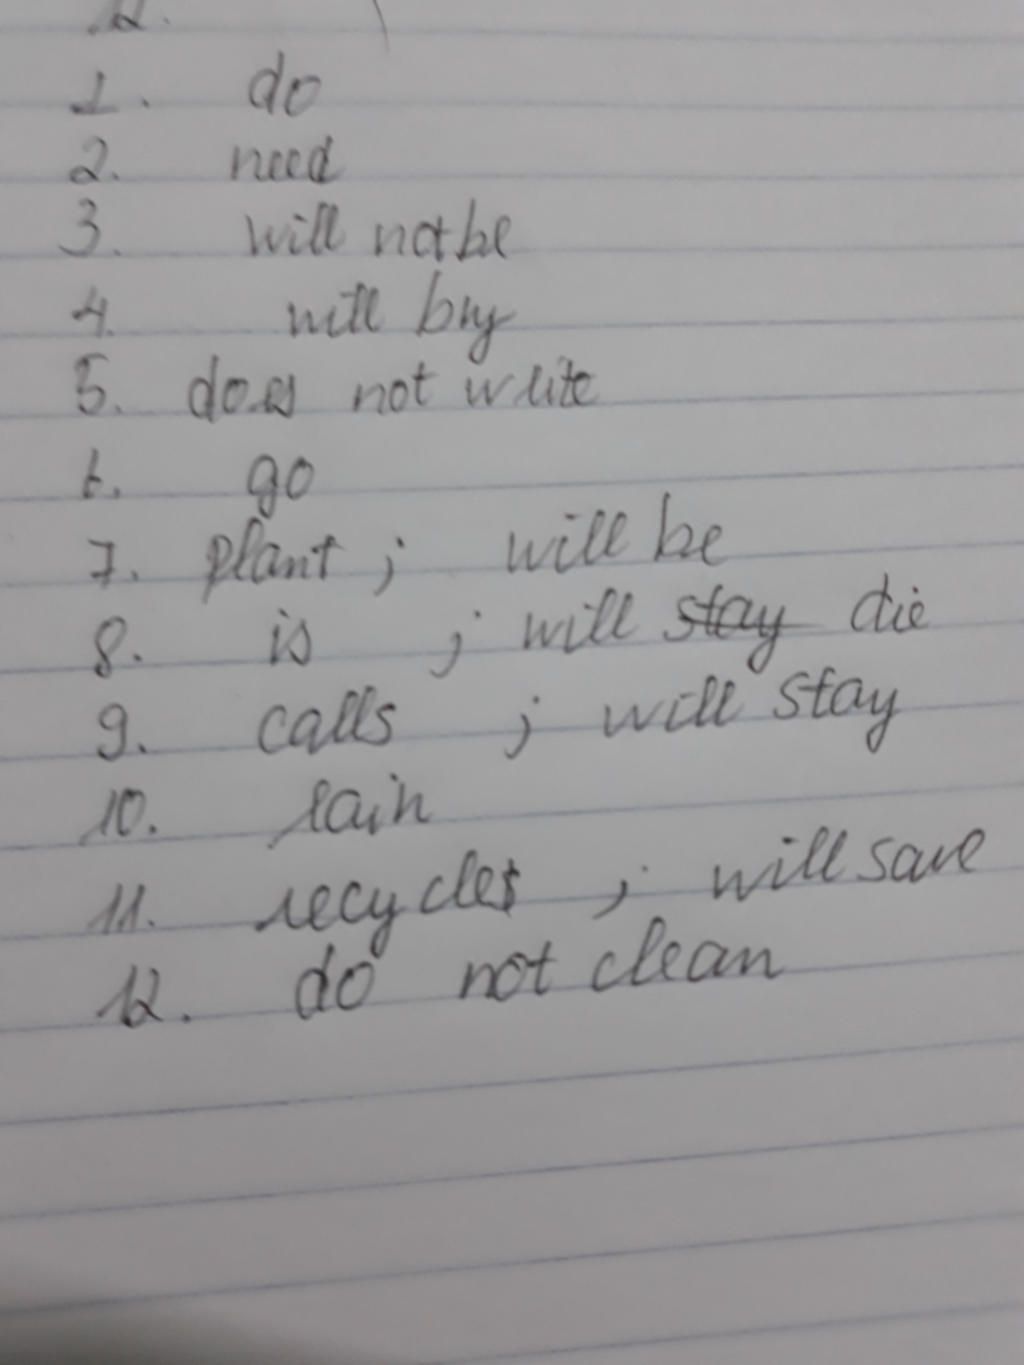 1. do
2. need
3. will not be
4. will buy
5. does not write
6. go
7. plant ; will be
8. is ; will stay die
9. calls ; will stay
10. rain
11. recycles ; will save
12. do not clean